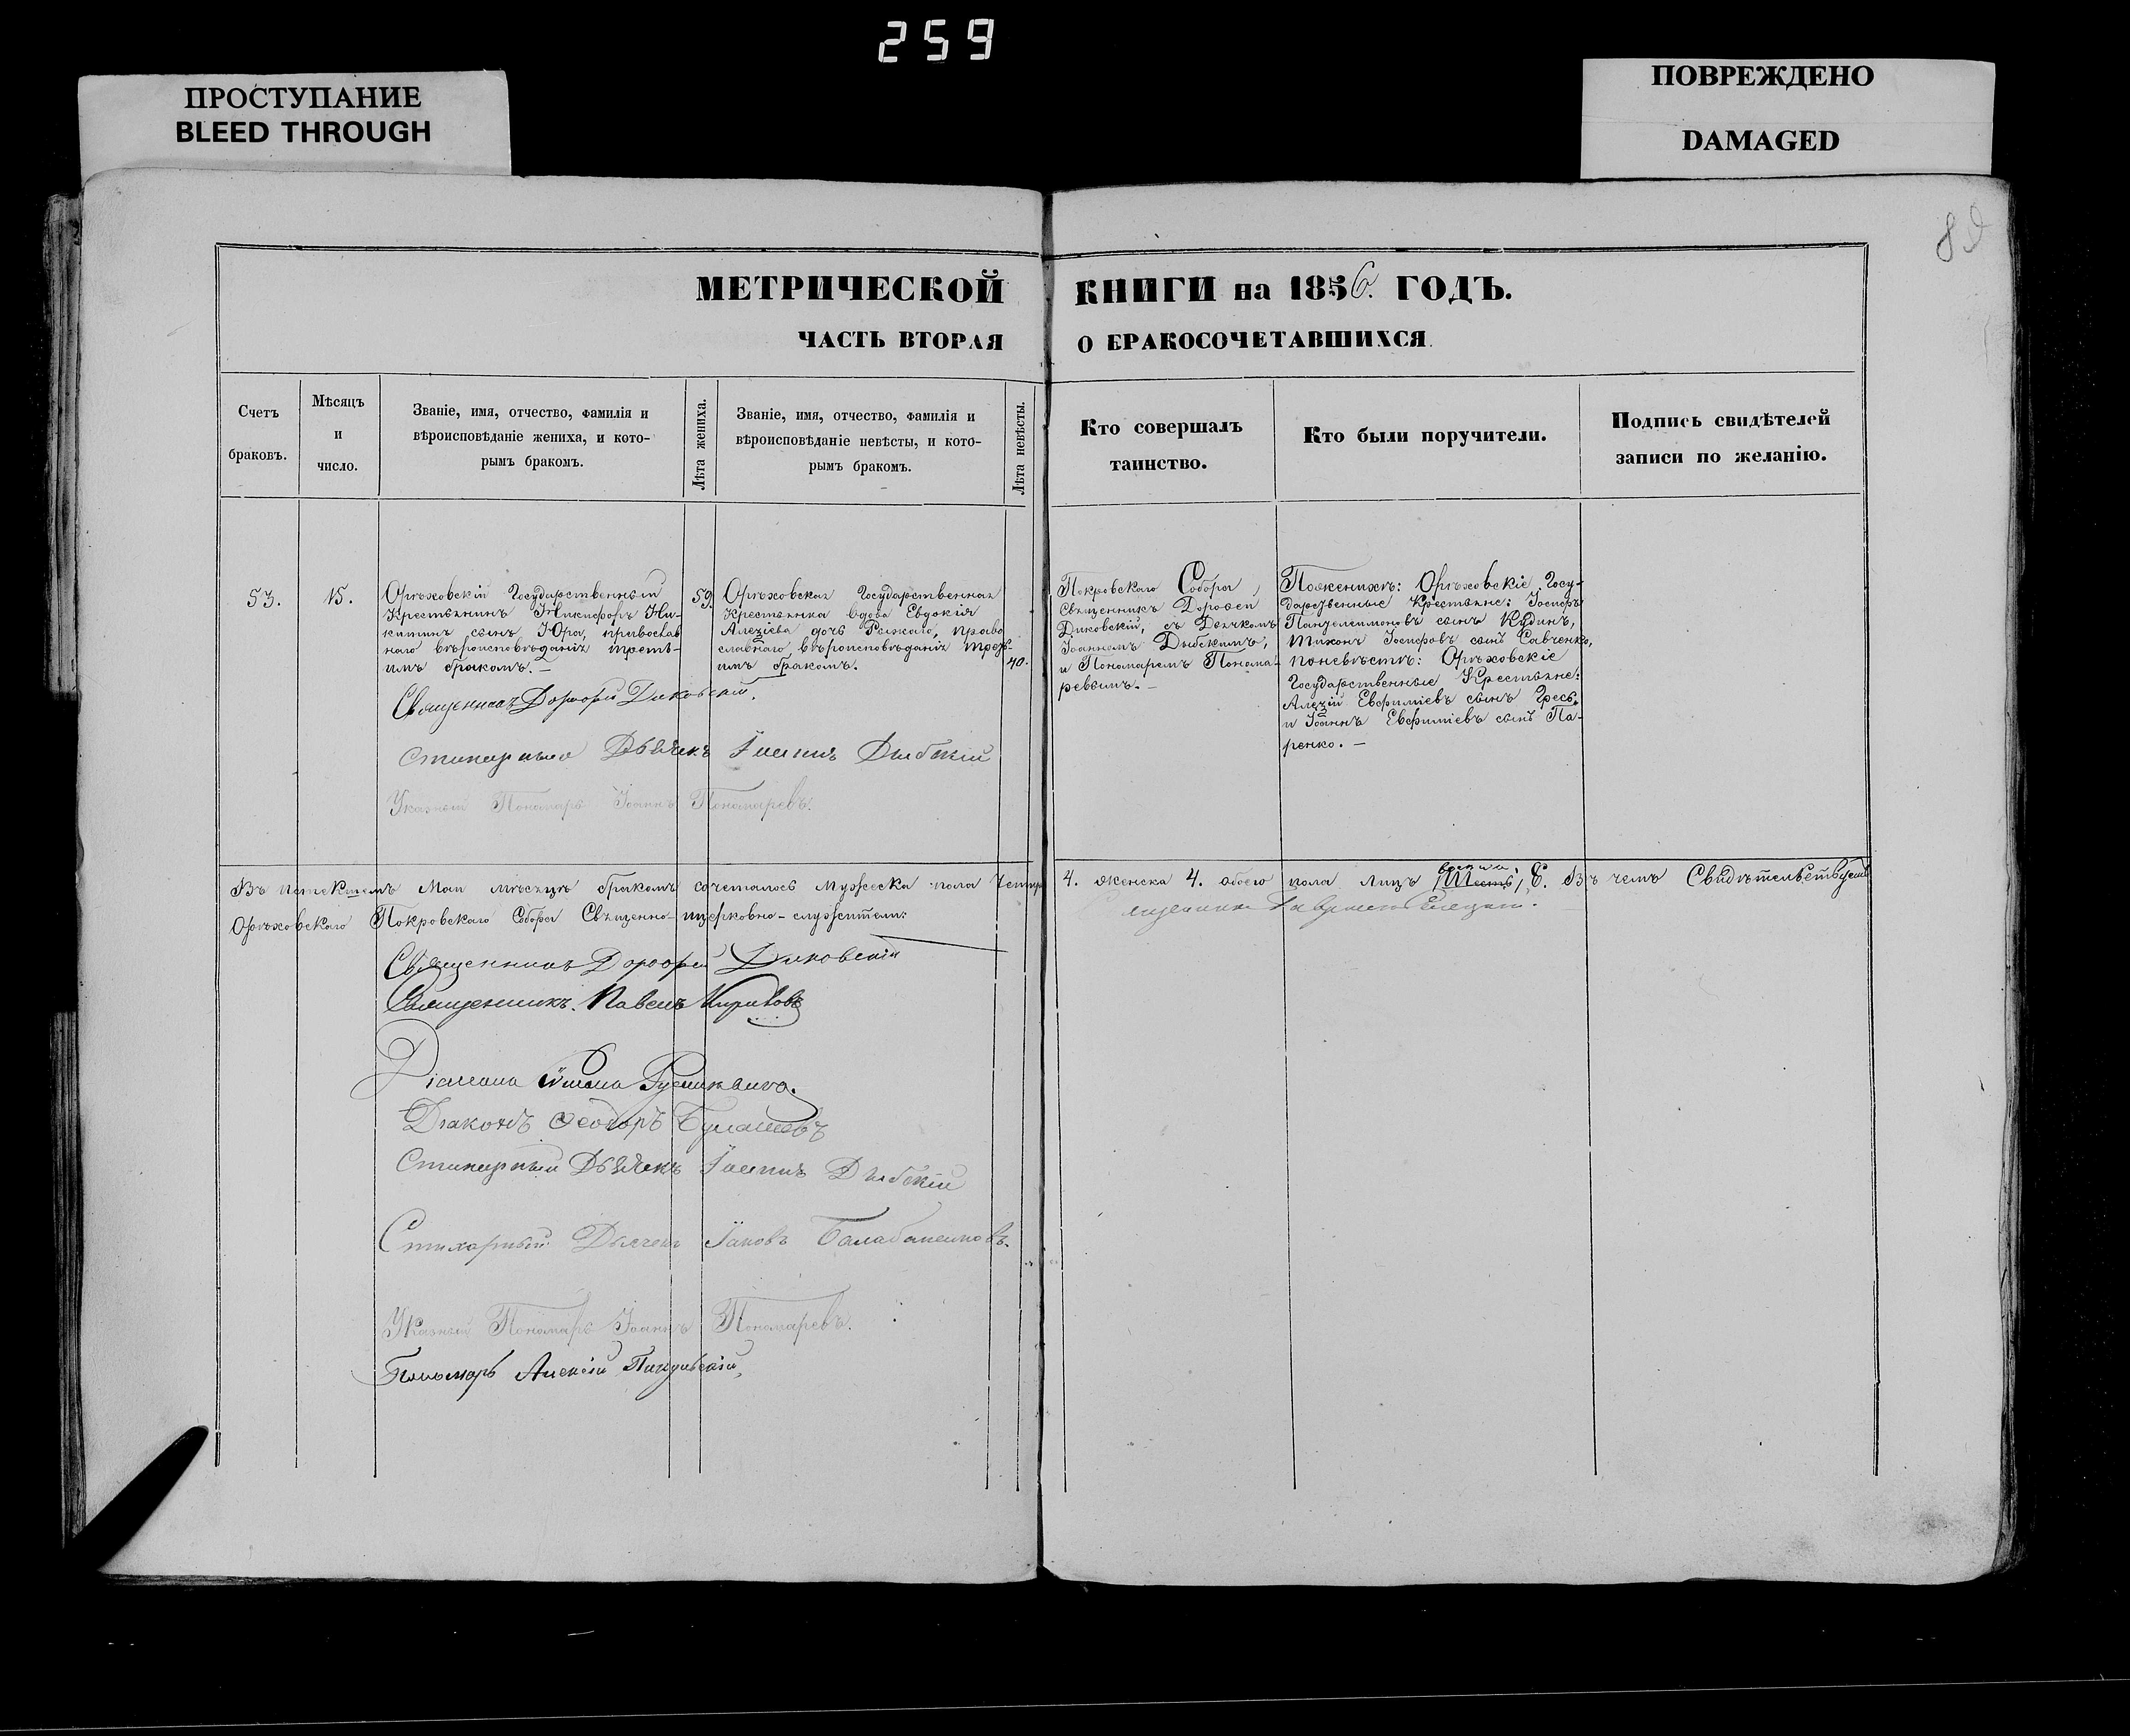 259
ПРОСТУПАНИЕ
BLEED THROUGH
ПОВРЕЖДЕНО
DAMAGED
МЕТРИЧЕСКОЙ КНИГИ на 1856. ГОДЪ.
ЧАСТЬ ВТОРАЯ О БРАКОСОЧЕТАВШИХСЯ.
Счетъ
браковъ.
Мѣсяцъ
и
число.
Званіе, имя, отчество, фамилія и
вѣроисповѣданіе жениха, и кото-
рымъ бракомъ.
Лѣта жениха.
Званіе, имя, отчество, фамилія и
вѣроисповѣданіе невѣсты, и кото-
рымъ бракомъ.
Лѣта невѣсты.
Кто совершалъ
таинство.
Кто были поручители.
Подпись свидѣтелей
записи по желанію.
53.
15.
Орѣховскій Государственный
Крестьянинъ Никифоръ Ни-
китинъ сынъ Юра, православ
наго вѣроисповѣданія треть-
имъ бракомъ.—
59.
Орѣховская Государственная
Крестьянка вдова Евдокія
Алезіева дочь Рыжаго, право
славнаго вѣроисповѣданія треть-
имъ бракомъ.
40.
Покровскаго Собора,
Священникъ Дорофей
Диковскій, съ Дьячкомъ
Іоанномъ Дыбскимъ,
и Пономаремъ Понома-
ревымъ.—
По женихѣ: Орѣховскіе Госу-
дарственные Крестьяне: Іосифъ
Пантелеимоновъ сынъ Кудинъ,
Тихонъ Іосифовъ сынъ Савченко,
по невѣстѣ: Орѣховскіе
Государственные Крестьяне:
Алезій Евфиміевъ сынъ Гресь,
и Іоаннъ Евфиміевъ сынъ Па-
ренко.—
Священникъ Дорофей Диковскій.
Стихарный Дьячекъ Іоаннъ Дыбскій
Указный Пономарь Іоаннъ Пономаревъ.
Въ Маи мѣсяцѣ бракомъ сочеталось мужеска пола Четыре
4. женска 4. обоего пола лицъ восемь, 8. Въ чемъ Свидѣтельствуемъ
Орѣховскаго Покровскаго Собора Священно-церковно-служители:
Священникъ Дорофей Диковскій
Священникъ Павелъ
Діаконъ Феодоръ
Стихарный Дьячекъ Іоаннъ Дыбскій
Стихарный Дьячекъ Іаковъ
Указный Пономарь Іоаннъ Пономаревъ.
Пономарь Алексій